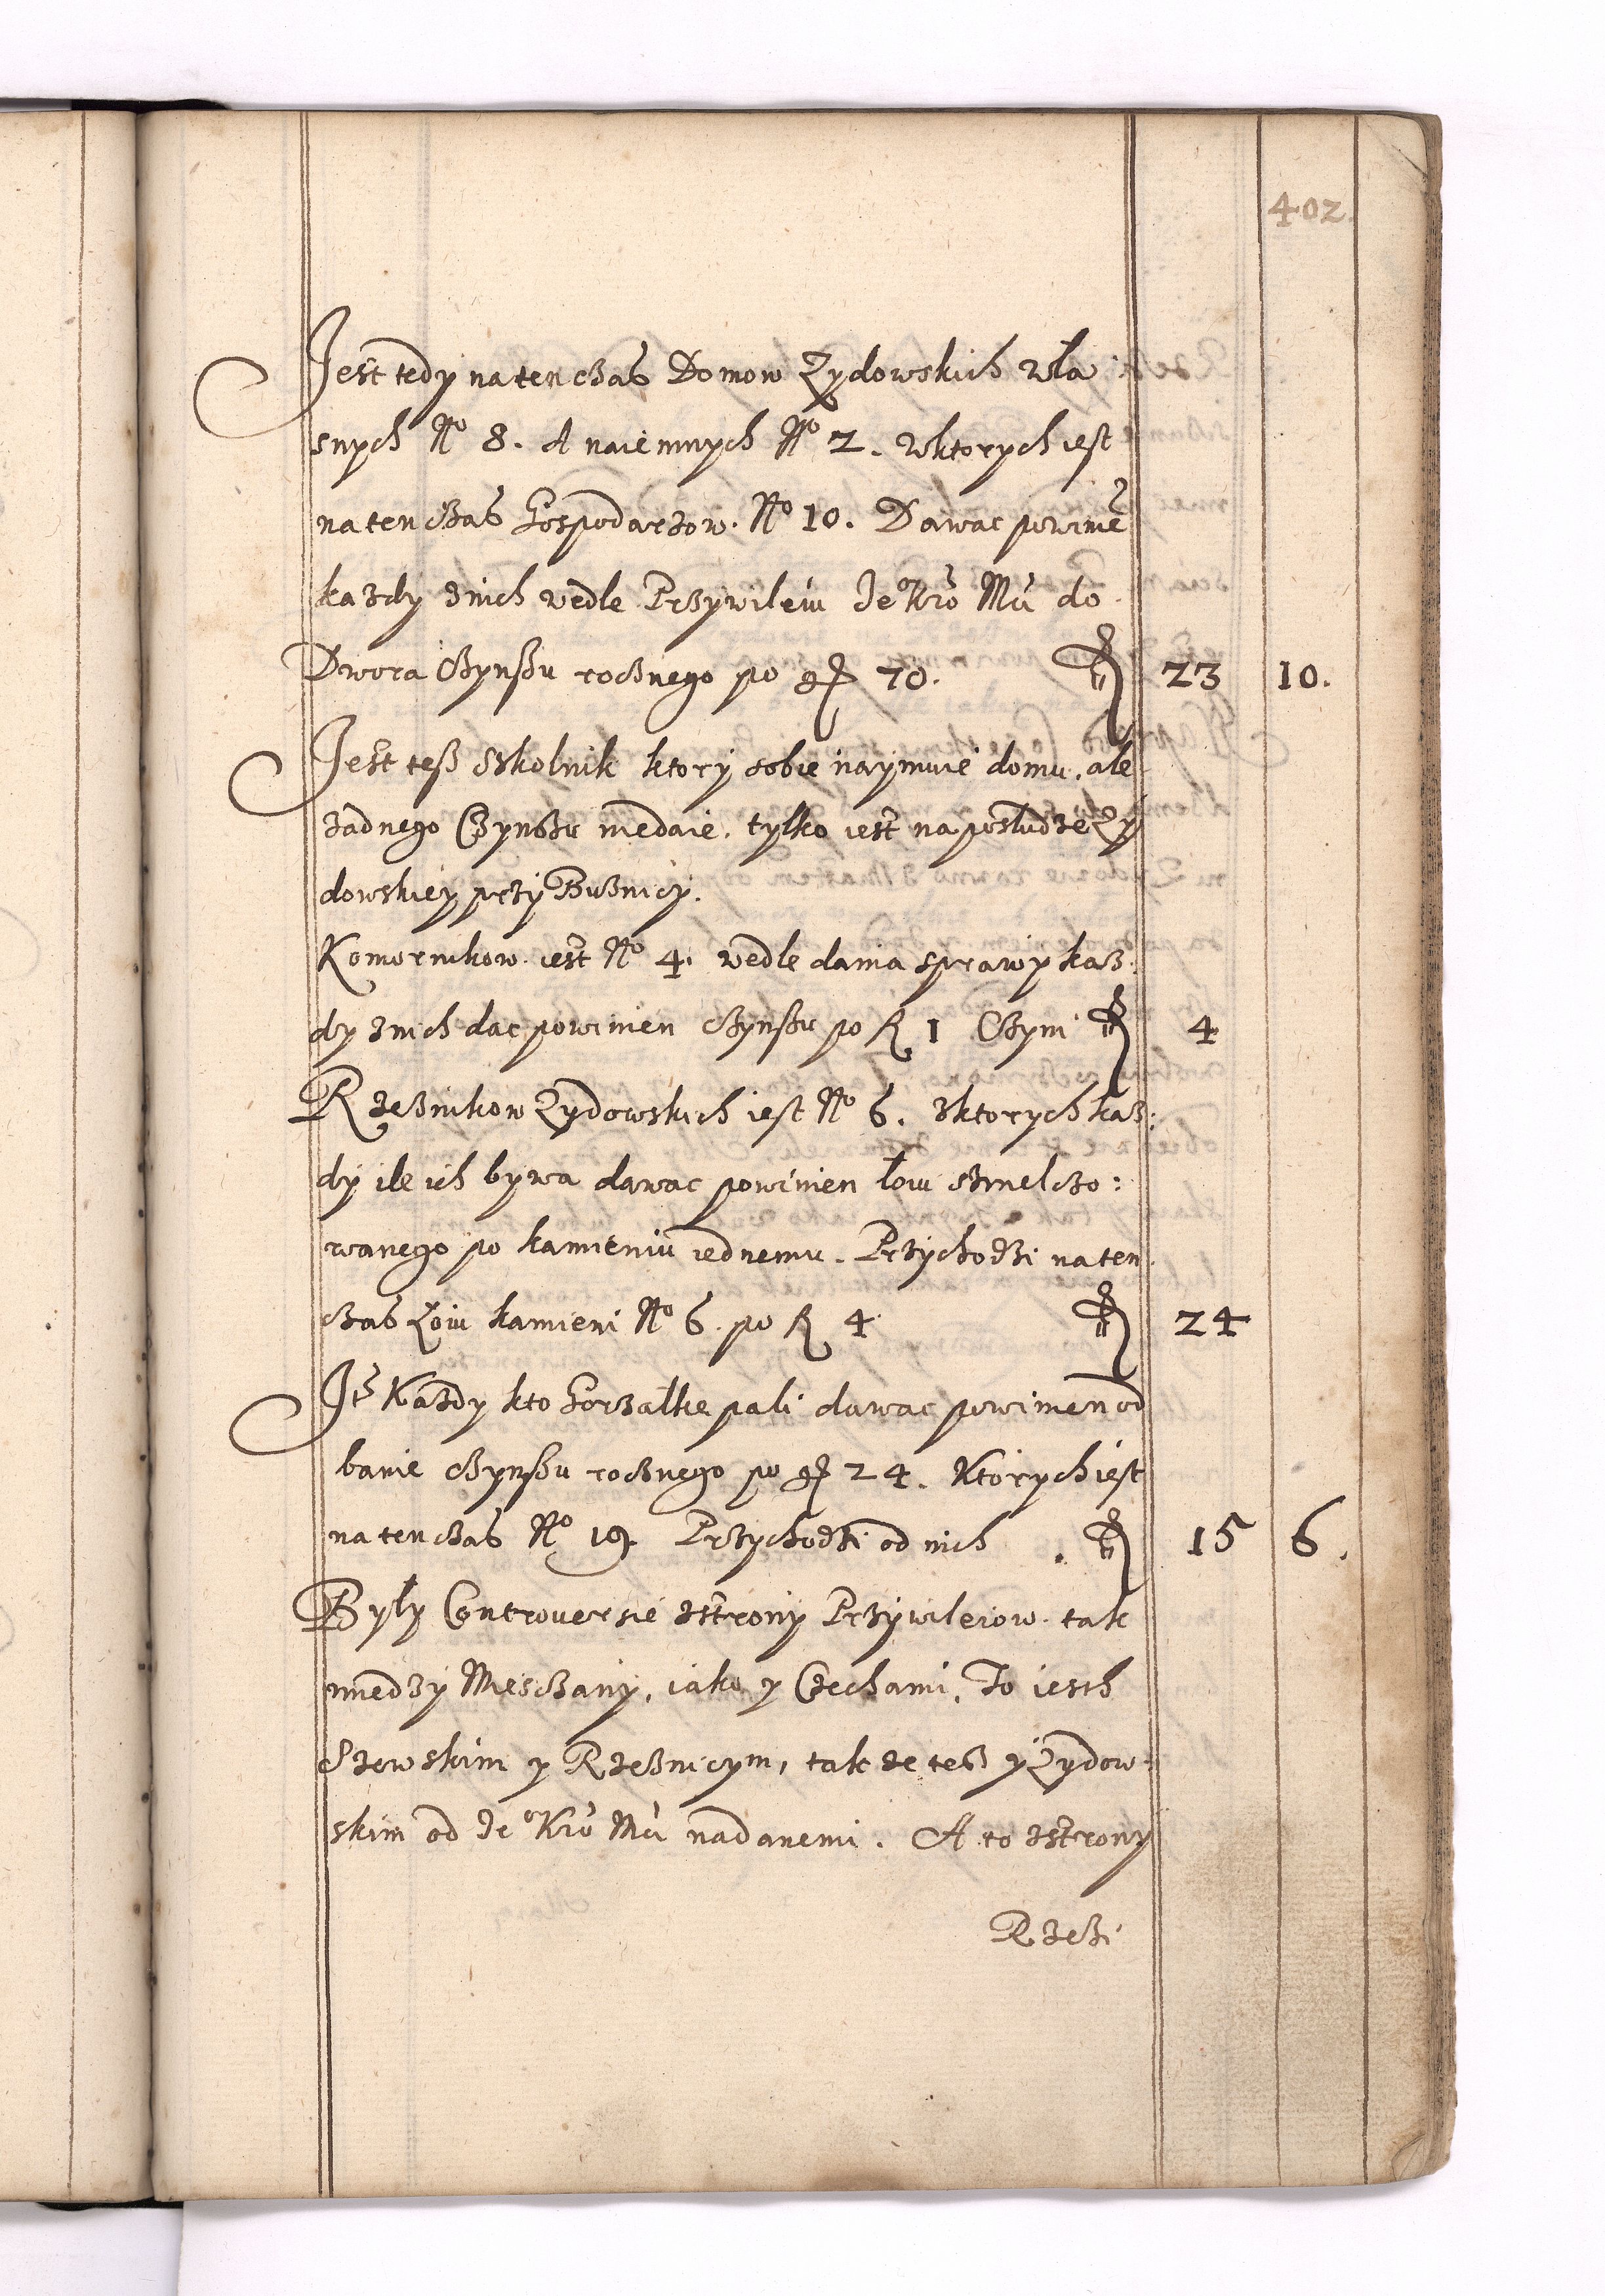 402.
Jest tedy na ten czas Domow Zydowskich wła:
snych No 8. A naiemnych No 2. wktorych iest
na ten czas Gospodarzow. No 10. Dawac powine
kazdy znich wedle Przywileiu Je° Kro Mci do
Dwora Czynszu rocznego po gr 70. 23 10.
Jest tesz Szkolnik ktory sobie naymuie domu, ale
zadnego Czynszu niedaie. tylko iest na posłudze Zy
dowskiey przy Buznicy.
Komornikow iest No 4. wedle dania sprawy kasz:
dy znich dac powinien czynszu po fl 1 Czyni 4
Rzeznikow Zydowskich iest No 6. zktorych kasz:
dy ile ich bywa dawac powinien łoiu szmelczo:
wanego po kamieniu iednemu. Przychodzi na ten
czas Łoiu kamieni No 6. po fl 4 24
Jt Kazdy kto Gorzałke pali dawac powinien od
banie czynszu rocznego po gr 24. Ktorych iest
na ten czas No 19. Przychodzi od nich 15 6.
Były Controuersie zstrony Przywileiow. tak
miedzy Miesczany, iako y Czechami, To iesth
Szewskim y Rzeznicym, takze tesz y Zydow:
skim od Je° Kro Mci nadanemi. A to zstrony
Rzezi